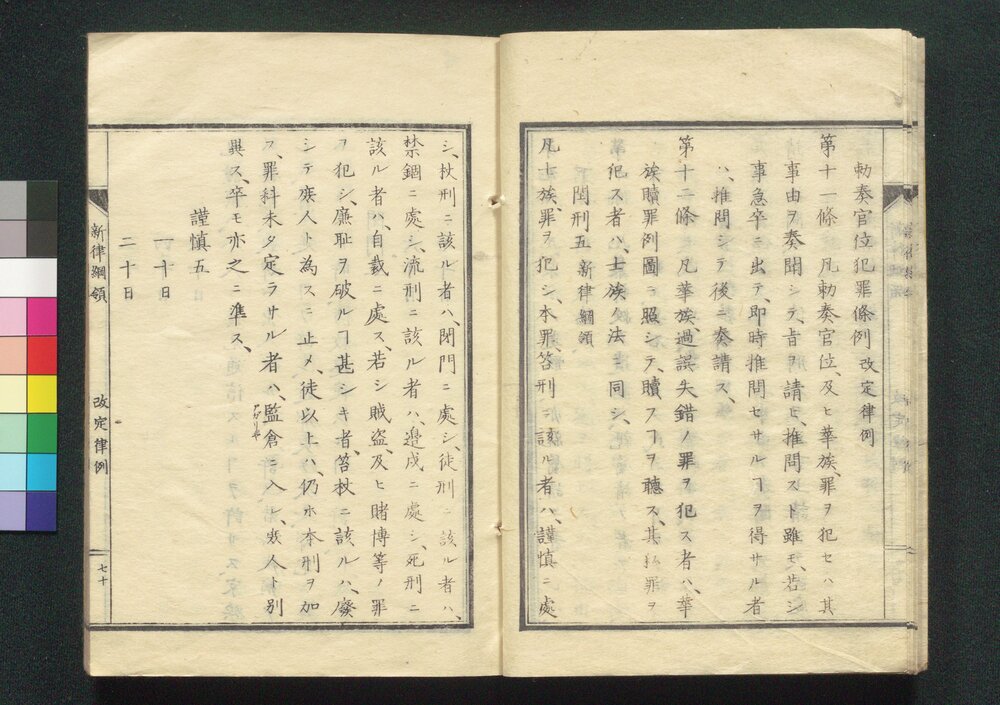 勅奏官位犯罪條例 改定律例
第十一條 凡勅奏官位、及ヒ華族、罪ヲ犯セハ、其
事由ヲ奏聞シテ、旨ヲ請ヒ、推問スト雖モ、若シ
事急卒ニ出テ、即時推問セサルヿヲ得サル者
ハ、推問シテ後ニ奏請ス、
第十二條 凡華族、過誤失錯ノ罪ヲ犯ス者ハ、華
族贖罪例圖ニ照シテ、贖フヿヲ聴ス、其私罪ヲ
犯ス者ハ、士族ノ法ニ同シ、
閏刑五 新律綱領
凡士族罪ヲ犯シ、本罪笞刑ニ該ル者ハ、謹慎ニ處
シ、杖刑ニ該ル者ハ、閉門ニ處シ、徒刑ニ該ル者ハ、
禁錮ニ處シ、流刑ニ該ル者ハ、邉戍ニ處シ、死刑ニ
該ル者ハ、自裁ニ處ス、若シ賊盗、及ヒ賭博等ノ罪
ヲ犯シ、廉恥ヲ破ルヿ甚シキ者、笞杖ニ該ルハ、廢
シテ庻人ト為スニ止メ、徒以上ハ、仍ホ本刑ヲ加
ス、罪科未タ定ラサル者ハ、監倉ニ入レ、庻人ト別
異ス、卒モ亦之ニ準ス、
謹慎五
一十日
二十日
新律綱領 改定律例 七十